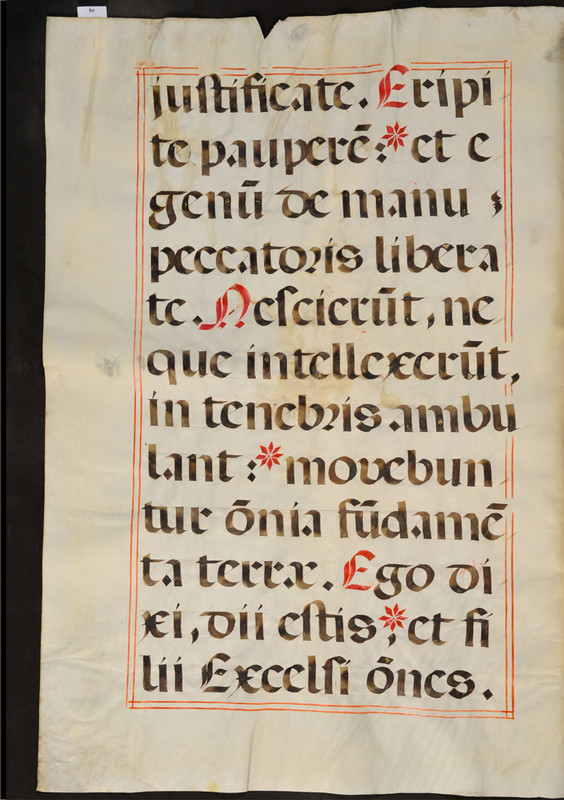 6v
justificate. Eripi
te pauperē:* et e
genū de manu
peccatoris libera
te. Nescierūt, ne
que intellexerūt,
in tenebris ambu
lant:* movebun
tur ōnia fūdamē
ta terræ. Ego di
xi, dii estis;* et fi
lii Excelsi ōnes.